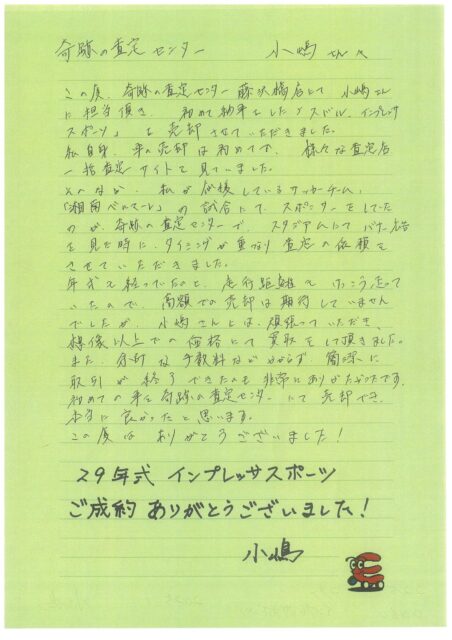 奇跡の査定センター 小嶋さんへ
この度、奇跡の査定センター 藤沢橋店にて 小嶋さん
に担当頂き、初めて納車をした
スポーツ」を売却させていただきました。
私自身、車の売却は初めてで、様々な査定店
一括査定サイトを見ていました。
そのなか、私が応援しているサッカーチーム、
「湘南ベルマーレ」の試合にて、スポンサーをしてた
のが、奇跡の査定センターで、スタジアムにてバナー広告
を見た時に、タイミングが重なり査定の依頼を
させていただきました。
年式も経ってたのと、走行距離もけっこう走って
いたので、高額での売却は期待していません
でしたが、小嶋さんには、頑張っていただき、
想像以上での価格にて買取をして頂きました。
また、余計な手数料などかからず、簡潔に
取引が終了できたのも非常にありがたかったです。
初めての車を奇跡の査定センターにて売却でき、
本当に良かったと思います。
この度は ありがとうございました!
29年式 インプレッサスポーツ
ご成約 ありがとうございました!
小嶋